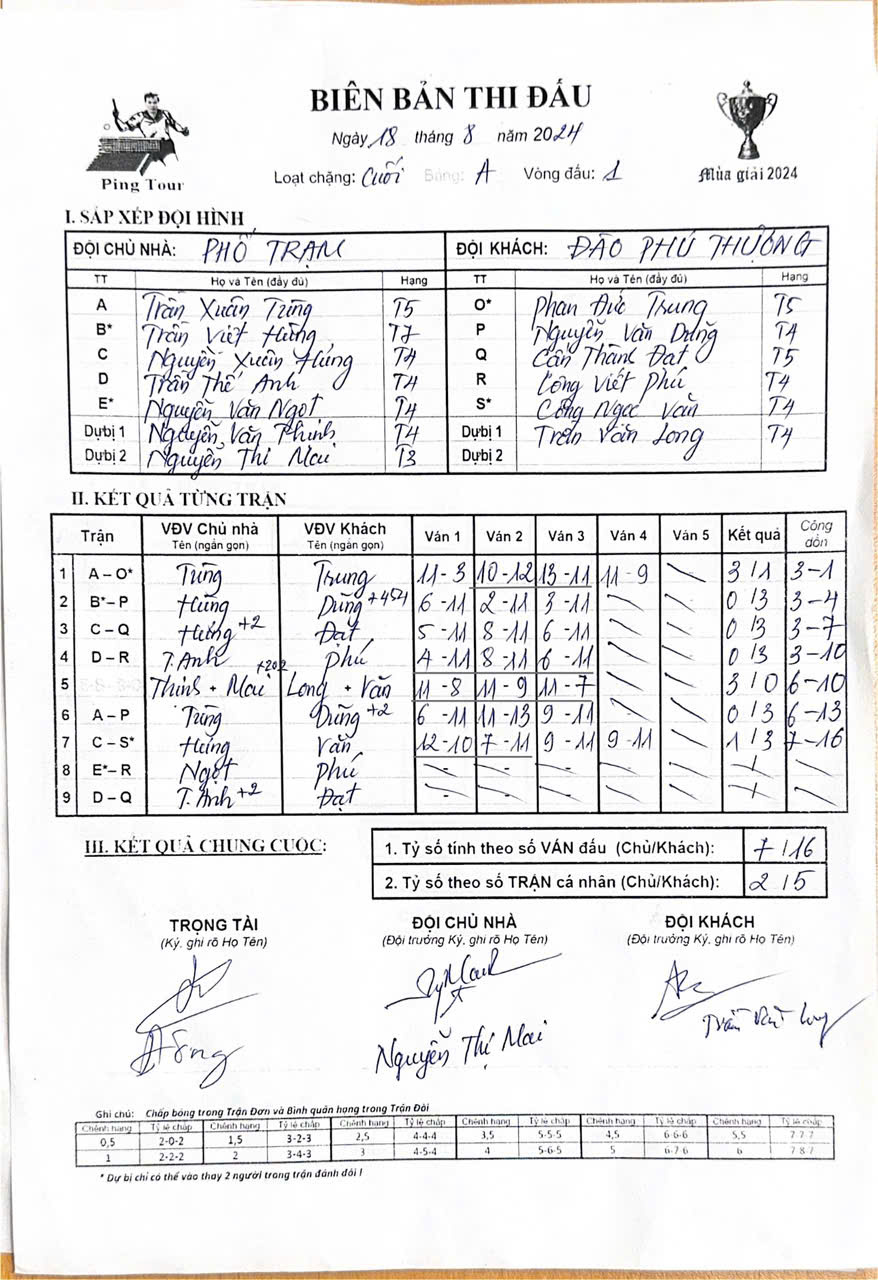 BIÊN BẢN THI ĐẤU
Ngày 18 tháng 8 năm 2024
Loạt chặng: Cuối Bảng: A Vòng đấu: 1
Ping Tour
Mùa giải 2024
I. SẮP XẾP ĐỘI HÌNH
ĐỘI CHỦ NHÀ: PHỐ TRẠM ĐỘI KHÁCH: ĐÀO PHÚ THƯỢNG
TT Họ và Tên (đầy đủ) Hạng TT Họ và Tên (đầy đủ) Hạng
A Trần Xuân Tùng T5 O* Phan Đức Trung T5
B* Trần Việt Hùng T7 P Nguyễn Văn Dũng T4
C Nguyễn Xuân Hùng T4 Q Cấn Thành Đạt T5
D Trần Thế Anh T4 R Công Viết Phú T4
E* Nguyễn Văn Ngọt T4 S* Công Ngọc Văn T4
Dự bị 1 Nguyễn Văn Thịnh T4 Dự bị 1 Trần Văn Long T4
Dự bị 2 Nguyễn Thị Mai T3 Dự bị 2
II. KẾT QUẢ TỪNG TRẬN
Trận VĐV Chủ nhà Tên (ngắn gọn) VĐV Khách Tên (ngắn gọn) Ván 1 Ván 2 Ván 3 Ván 4 Ván 5 Kết quả Cộng dồn
1 A – O* Tùng Trung 11-3 10-12 13-11 11-9 3/1 3-1
2 B* – P Hùng Dũng +454 6-11 2-11 3-11 0/3 3-4
3 C – Q Hùng +2 Đạt 5-11 8-11 6-11 0/3 3-7
4 D – R T. Anh Phú 4-11 8-11 6-11 0/3 3-10
5 Thịnh + Mai +202 Long + Văn 11-8 11-9 11-7 3/0 6-10
6 A – P Tùng Dũng +2 6-11 11-13 9-11 0/3 6-13
7 C – S* Hùng Văn 12-10 7-11 9-11 9-11 1/3 7-16
8 E* – R Ngọt Phú - - - /
9 D – Q T. Anh +2 Đạt - - - /
III. KẾT QUẢ CHUNG CUỘC:
1. Tỷ số tính theo số VÁN đấu (Chủ/Khách): 7/16
2. Tỷ số theo số TRẬN cá nhân (Chủ/Khách): 2/5
TRỌNG TÀI ĐỘI CHỦ NHÀ ĐỘI KHÁCH
(Ký, ghi rõ Họ Tên) (Đội trưởng Ký, ghi rõ Họ Tên) (Đội trưởng Ký, ghi rõ Họ Tên)
Nguyễn Thị Mai Trần Văn Long
Ghi chú: Chấp bóng trong Trận Đơn và Bình quân hạng trong Trận Đôi
Chênh hạng Tỷ lệ chấp Chênh hạng Tỷ lệ chấp Chênh hạng Tỷ lệ chấp Chênh hạng Tỷ lệ chấp Chênh hạng Tỷ lệ chấp Chênh hạng Tỷ lệ chấp
0,5 2-0-2 1,5 3-2-3 2,5 4-4-4 3,5 5-5-5 4,5 6-6-6 5,5 7-7-7
1 2-2-2 2 3-4-3 3 4-5-4 4 5-6-5 5 6-7-6 6 7-8-7
* Dự bị chỉ có thể vào thay 2 người trong trận đánh đôi !